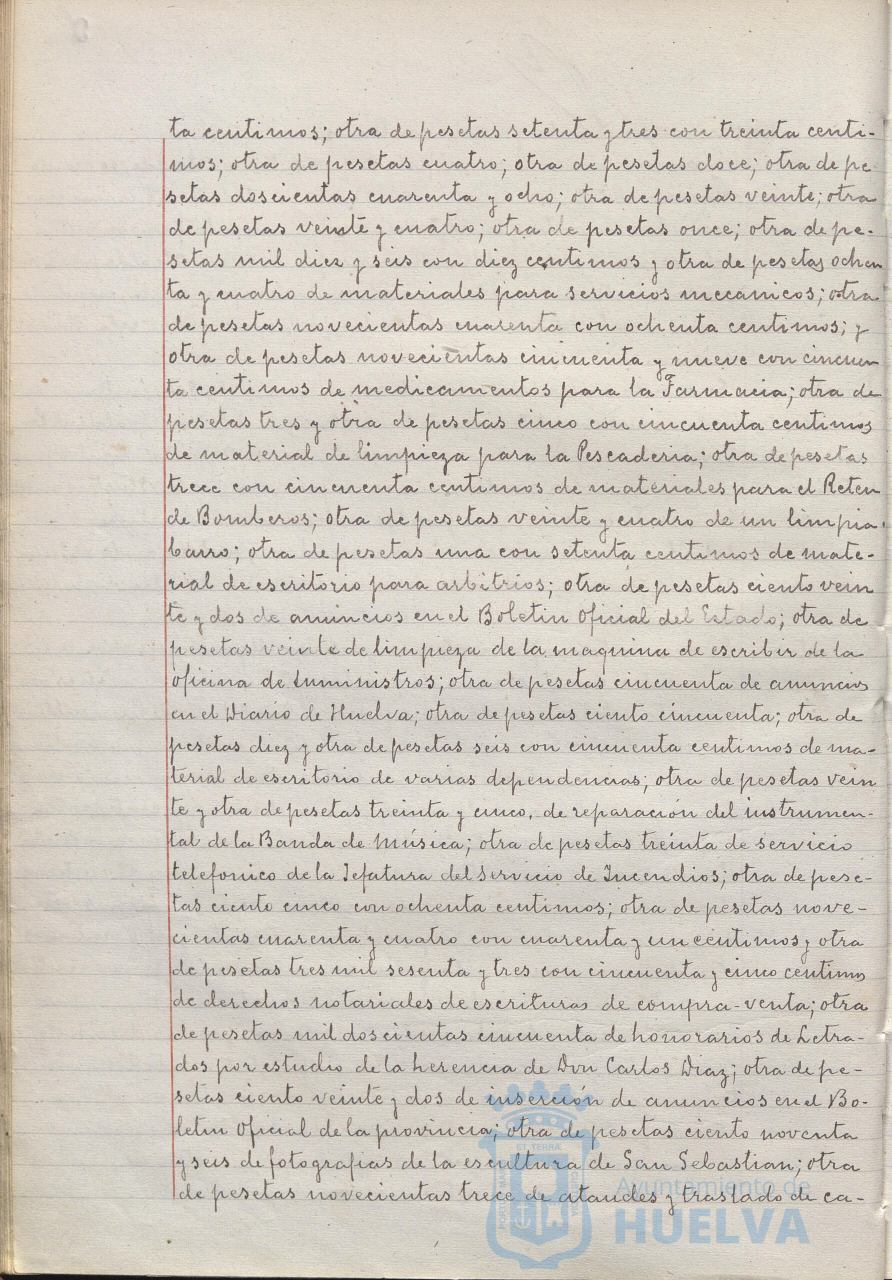 ta centimos; otra de pesetas setenta y tres con treinta centi-
mos; otra de pesetas cuatro; otra de pesetas doce; otra de pe-
setas doscientas cuarenta y ocho; otra de pesetas veinte; otra
de pesetas veinte y cuatro; otra de pesetas once; otra de pe-
setas mil diez y seis con diez centimos y otra de pesetas ochen
ta y cuatro de materiales para servicios mecanicos; otra
de pesetas novecientas cuarenta con ochenta centimos; y
otra de pesetas novecientas cincuenta y nueve con cincuen
ta centimos de medicamentos para la Farmacia; otra de
pesetas tres y otra de pesetas cinco con cincuenta centimos
de material de limpieza para la Pescaderia; otra de pesetas
trece con cincuenta centimos de materiales para el Reten
de Bomberos; otra de pesetas veinte y cuatro de un limpia
barro; otra de pesetas una con setenta centimos de mate-
rial de escritorio para arbitrios; otra de pesetas ciento vein
te y dos de anuncios en el Boletin Oficial del Estado; otra de
pesetas veinte de limpieza de la maquina de escribir de la
oficina de Suministros; otra de pesetas cincuenta de anuncios
en el Diario de Huelva; otra de pesetas ciento cincuenta; otra de
pesetas diez y otra de pesetas seis con cincuenta centimos de ma-
terial de escritorio de varias dependencias; otra de pesetas vein
te y otra de pesetas treinta y cinco, de reparación del instrumen-
tal de la Banda de Música; otra de pesetas treinta de servicio
telefonico de la Jefatura del Servicio de Incendios; otra de pese-
tas ciento cinco con ochenta centimos; otra de pesetas nove-
cientas cuarenta y cuatro con cuarenta y un centimos y otra
de pesetas tres mil sesenta y tres con cincuenta y cinco centimos
de derechos notariales de escrituras de compra-venta; otra
de pesetas mil doscientas cincuenta de honorarios de Letra-
dos por estudio de la herencia de Don Carlos Diaz; otra de pe-
setas ciento veinte y dos de inserción de anuncios en el Bo-
letin Oficial de la provincia; otra de pesetas ciento noventa
y seis de fotografias de la escultura de San Sebastian; otra
de pesetas novecientas trece de ataudes y traslado de ca-
Ayuntamiento de
HUELVA